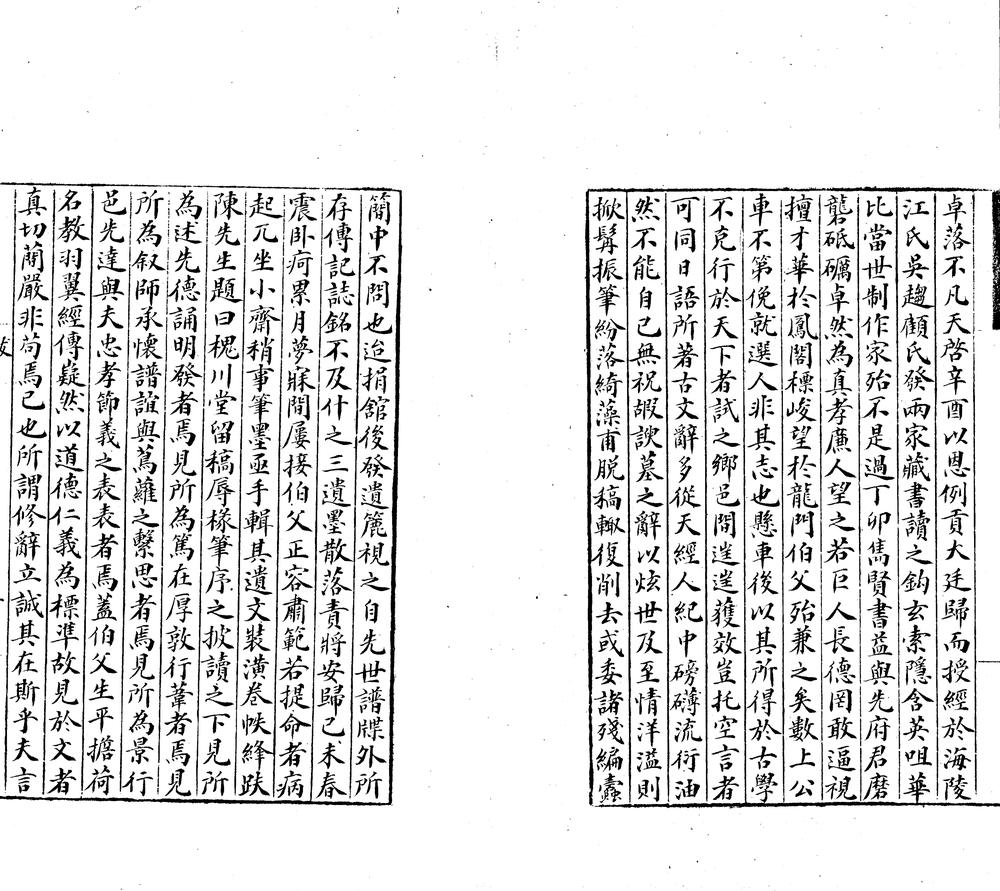 卓落不凡天啓辛酉以恩例貢大廷歸而授經於海陵
江氏吳趨顧氏發兩家藏書讀之鈎玄索隱含英咀華
比當世制作家殆不是過丁卯雋賢書益與先府君磨
礲砥礪卓然為真孝廉人望之若巨人長德罔敢逼視
擅才華於鳳閣標峻望於龍門伯父殆兼之矣數上公
車不第俛就選人非其志也懸車後以其所得於古學
不克行於天下者試之鄉邑間遑遑獲效豈托空言者
可同日語所著古文辭多從天經人紀中磅礴流衍油
然不能自已無祝嘏諛墓之辭以炫世及至情洋溢則
掀髯振筆紛落綺藻甫脫稿輙復削去或委諸殘編蠹
簡中不問也迨捐舘後發遺簏視之自先世譜牒外所
存傳記誌銘不及什之三遺墨散落責將安歸己未春
震卧疴累月夢寐間屢接伯父正容肅範若提命者病
起兀坐小齋稍事筆墨亟手輯其遺文裝潢卷帙絳趺
陳先生題曰槐川堂留稿辱椽筆序之披讀之下見所
為述先德誦明發者焉見所為篤在厚敦行葦者焉見
所為叙師承懷譜誼與蔦蘿之繫思者焉見所為景行
邑先達與夫忠孝節義之表表者焉蓋伯父生平擔荷
名教羽翼經傳嶷然以道德仁義為標準故見於文者
真切蕑嚴非苟焉已也所謂修辭立誠其在斯乎夫言